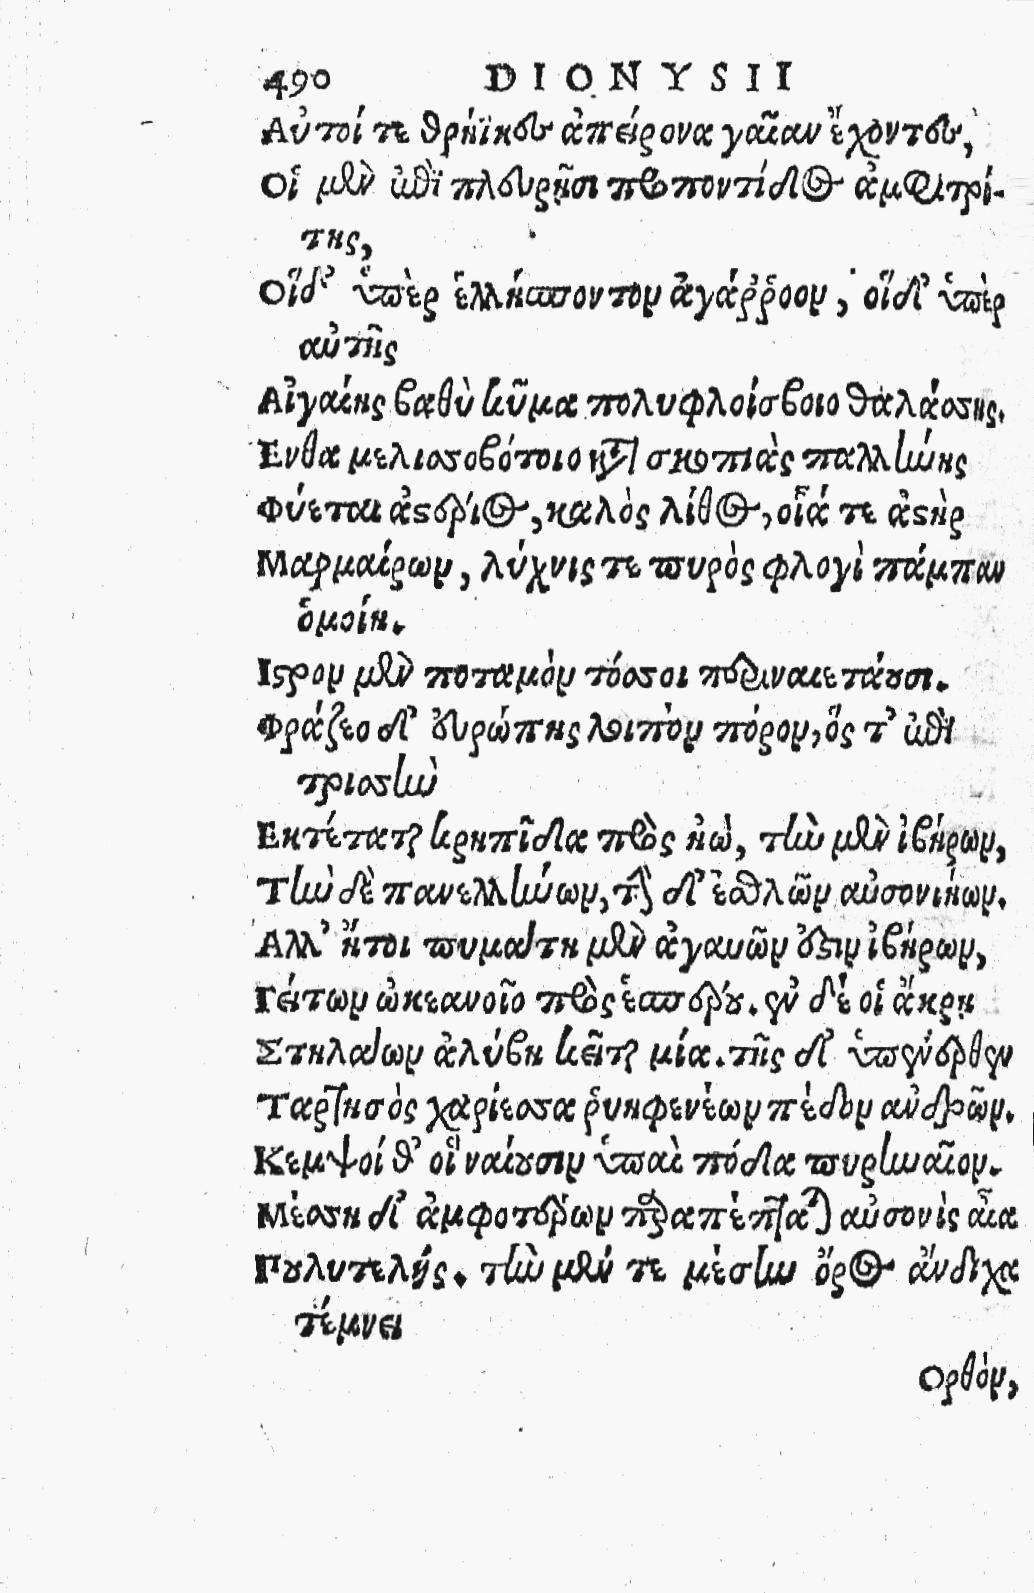 490 DIONYSII
Αὐτοί τε θρήϊκες ἀπείρονα γαῖαν ἔχοντες,
Οἱ μὲν ἐπὶ πλευρῇσι προποντίδος ἀμφιτρί-
της,
Οἵδ' ὑπὲρ ἑλλήσποντον ἀγάῤῥοον, οἵδ' ὑπὲρ
αὐτῆς
Αἰγαίης βαθὺ κῦμα πολυφλοίσβοιο θαλάσσης.
Ενθα μελισσοβότοιο κατὰ σκοπιὰς παλλήνης
Φύεται ἀστέριος, καλὸς λίθος, οἷά τε ἀστὴρ
Μαρμαίρων, λύχνις τε πυρὸς φλογὶ πάμπαν
ὁμοίη.
Ιστρον μὲν ποταμὸν τόσσοι περιναιετάουσι.
Φράζεο δ' εὐρώπης λοιπὸν πόρον, ὅς τ' ἐπὶ
τρισσὴν
Εκτέταται κρηπῖδα πρὸς ἠὼ, τὴν μὲν ἰβήρων,
Τὴν δὲ πανελλήνων, τὴν δ' ἐσθλῶν αὐσονιήων.
Αλλ' ἤτοι πυμάτη μὲν ἀγαυῶν ἐστιν ἰβήρων,
Γείτων ὠκεανοῖο πρὸς ἑσπέρου. ἐν δέ οἱ ἄκρῃ
Στηλάων ἀλύβη κεῖται μία. τῆς δ' ὑπένερθεν
Ταρτησὸς χαρίεσσα ῥυηφενέων πέδον ἀνδρῶν.
Κεμψοί θ' οἳ ναίουσιν ὑπαὶ πόδα πυρηναῖον.
Μέσση δ' ἀμφοτέρων παραπέπταται αὐσονὶς αἶα
Πουλυτελής. τὴν μέν τε μέσην ὄρος ἄνδιχα
τέμνει
Ορθόν,